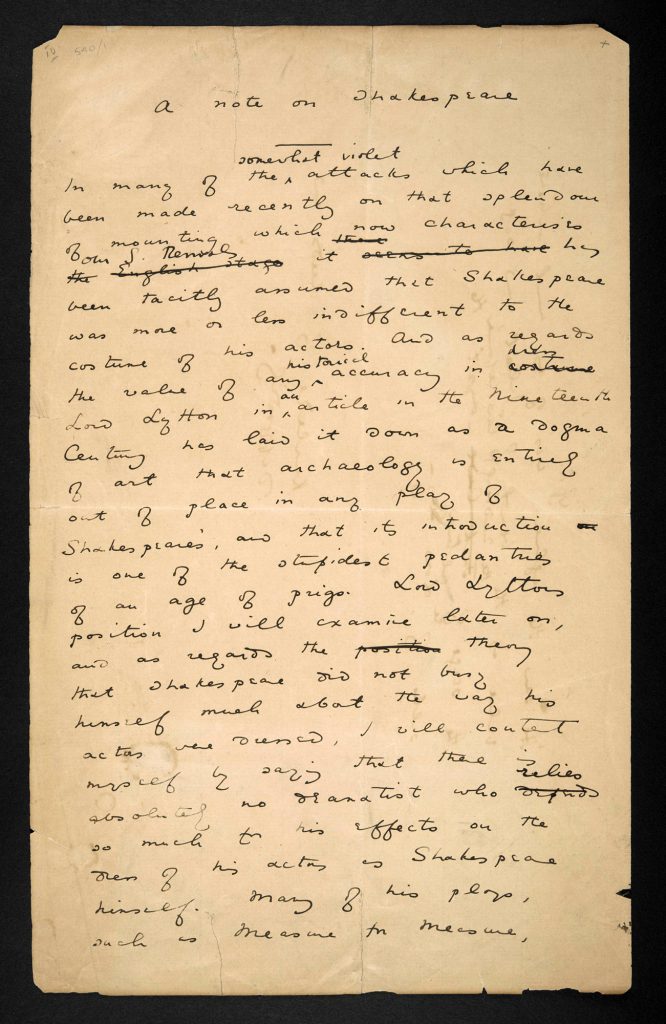 10 540/1 +
A note on Shakespeare
somewhat violet
In many of the ‸ attacks which have
been made recently on that splendour
of mounting which now characterises
our S. Revivals
the English Stage it seems to have has
been tacitly assumed that Shakespeare
was more or less indifferent to the
costume of his actors. And as regards
historical dress
the value of any ‸ accuracy in costume
an
Lord Lytton in ‸ article in the Nineteenth
Century has laid it down as a dogma
of art that archaeology is entirely
out of place in any play of
Shakespeare's, and that its introduction
is one of the stupidest pedantries
of an age of prigs. Lord Lytton's
position I will examine later on,
and as regards the position theory
that Shakespeare did not busy
himself much about the way his
actors were dressed, I will content
myself by saying that there is
relies
absolutely no dramatist who depends
so much for his effects on the
dress of his actors as Shakespeare
himself. Many of his plays,
such as Measure for Measure,